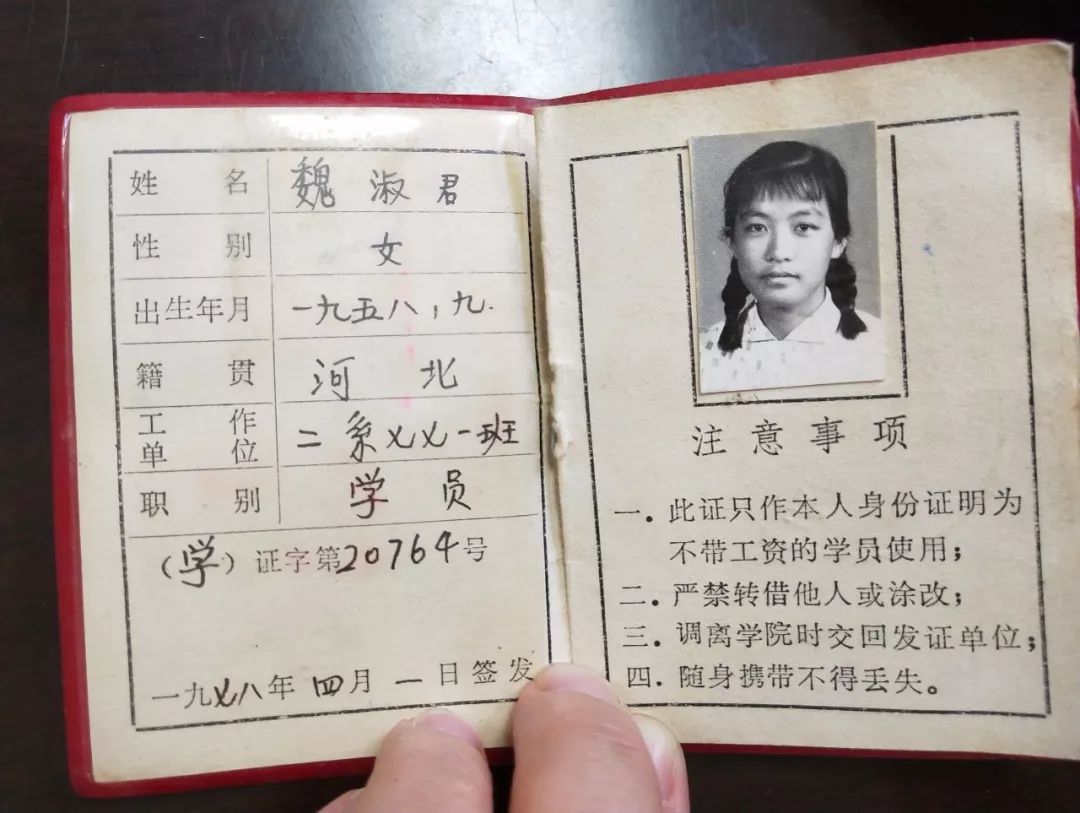 姓名 魏淑君
性别 女
出生年月 一九五八,九.
籍贯 河北
工作单位 二系七七一班
职别 学员
(学)证字第20764号
一九七八年四月一日签发
注意事项
一.此证只作本人身份证明为
不带工资的学员使用;
二.严禁转借他人或涂改;
三.调离学院时交回发证单位;
四.随身携带不得丢失。